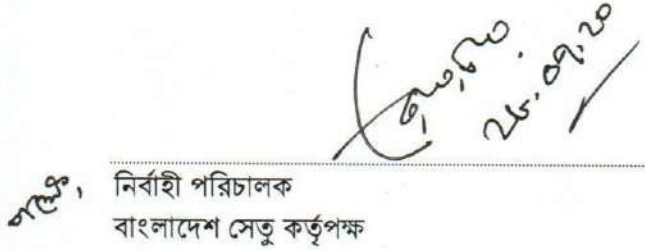 ২৮.০৭.২০
পক্ষে, নির্বাহী পরিচালক
বাংলাদেশ সেতু কর্তৃপক্ষ